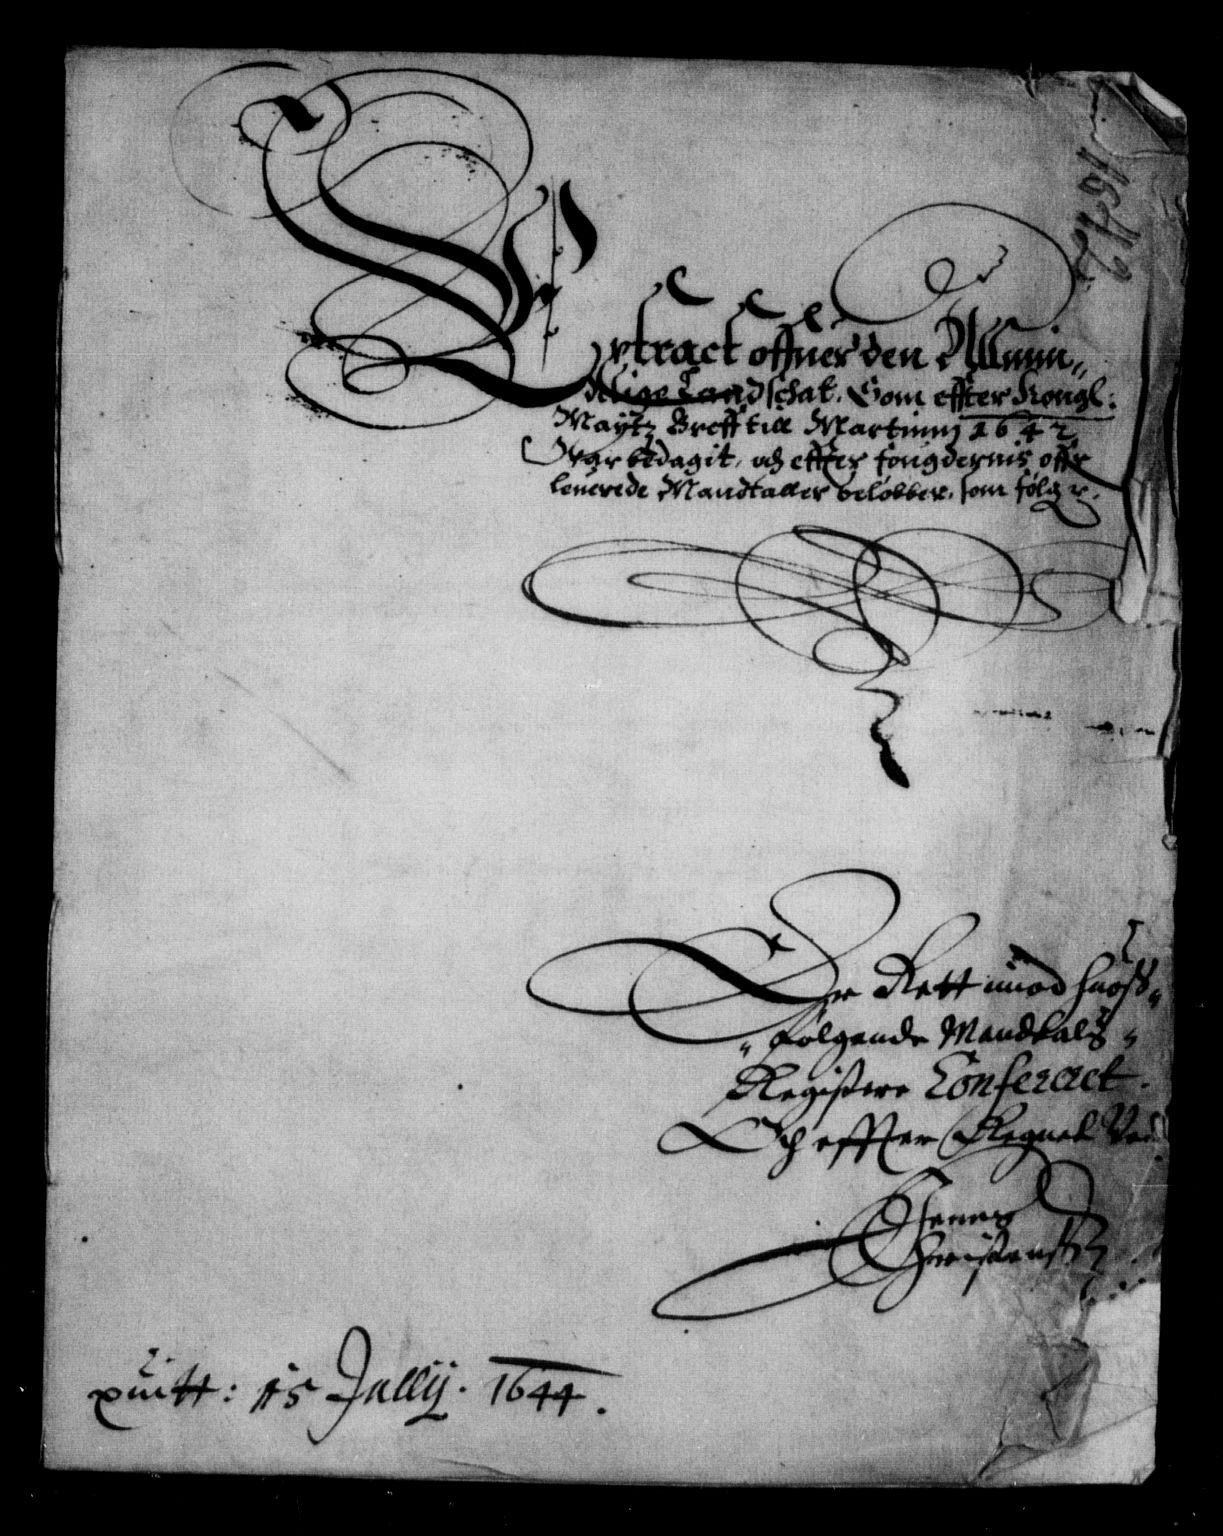 1642
Extract offuer den Allmin,,
delige Landschat. Som effter Kongl:
Maytz Breff till Martinnj 1642.
War bedagit, och effter fougdernis offr
leuerede Mandtaller beløbber, som følger.
Er Rett imod huoss,,
,,følgende Mandtals,,
Registere Confereret.
Och effter Regnet Ved
Christensen
quitt: 15 Jullij. 1644.